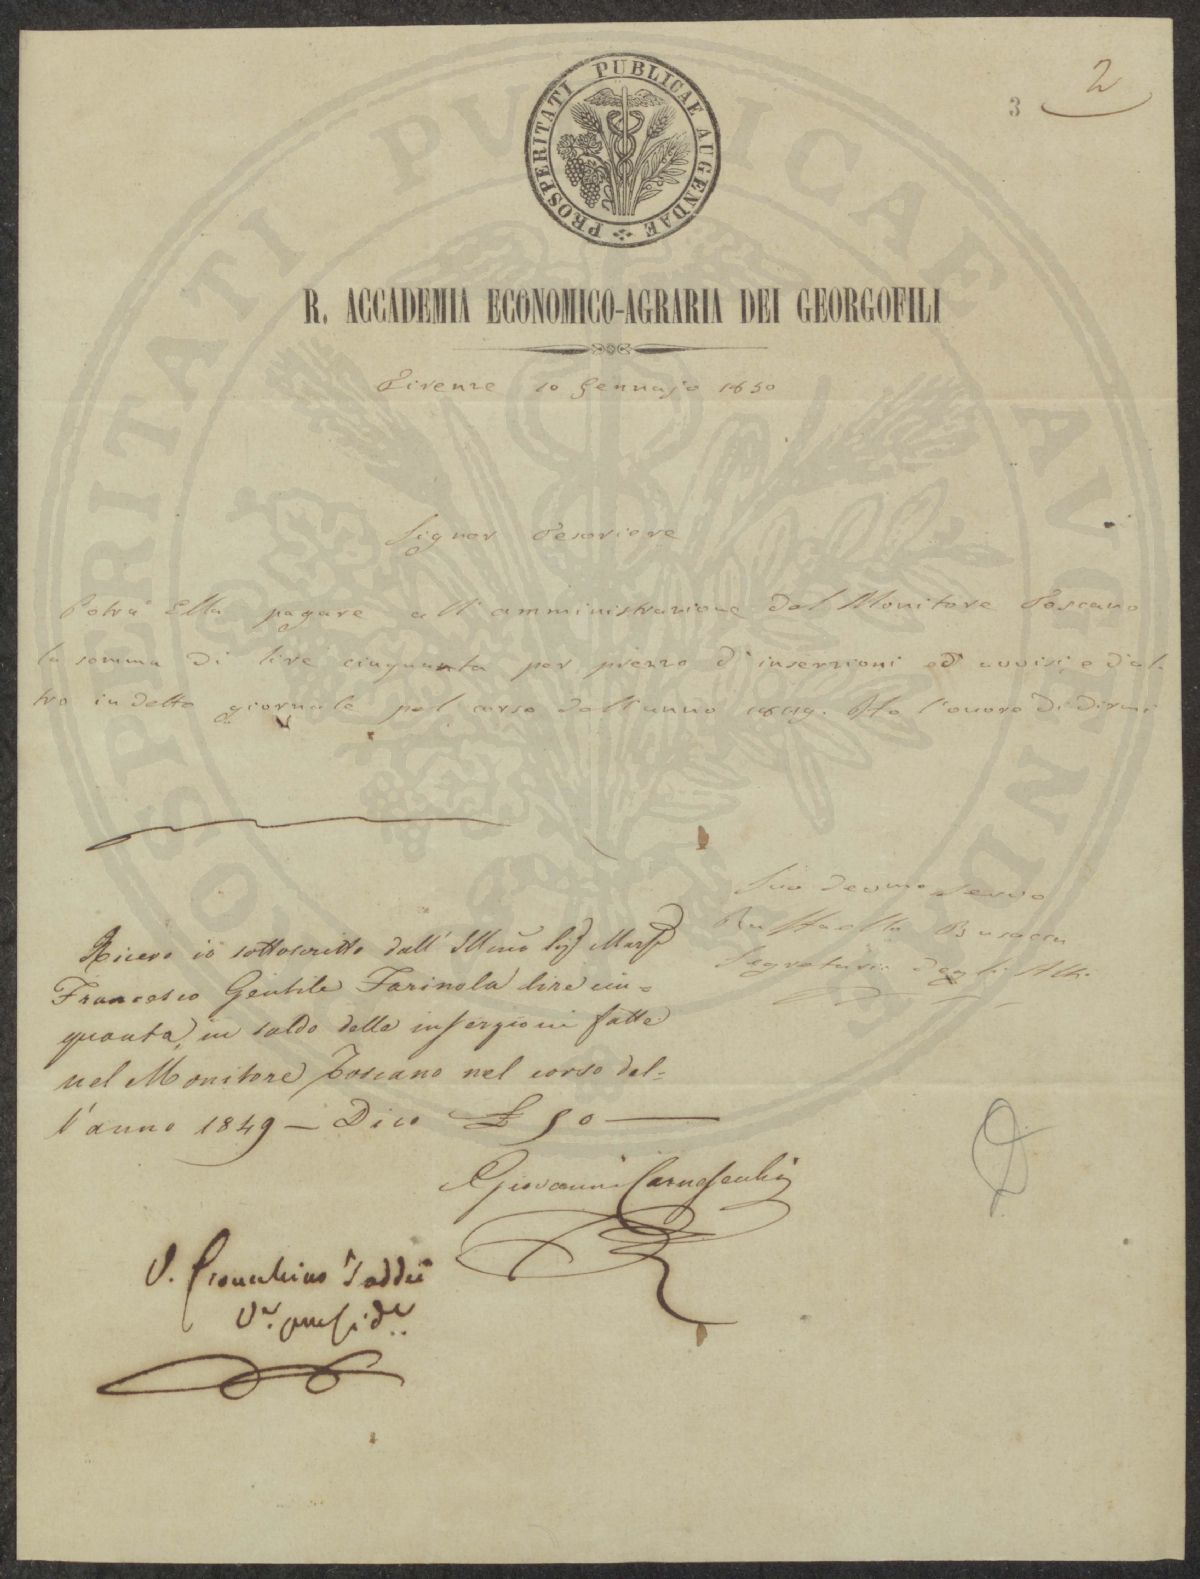 2
3
PROSPERITATI PUBLICAE AUGENDAE
R. ACCADEMIA ECONOMICO-AGRARIA DEI GEORGOFILI
Firenze 10 Gennajo 1850
Signor Tesoriere
Potrà Ella pagare all'amministrazione del Monitore Toscano
la somma di lire cinquanta per prezzo d'inserzioni ed avvisi e d'al-
tro in detto giornale pel corso dell'anno 1849. Ho l'onore di dirmi
Suo devmo servo
Raffaello Busacca
Segretario degli Atti
Ricevo io sottoscritto dall'Illmo Sigr March
Francesco Gentile Farinola lire cin=
quanta, in saldo delle inserzioni fatte
nel Monitore Toscano nel corso del=
l'anno 1849 — Dico £ 50 —
Giovanni
V. Gioacchino Taddei